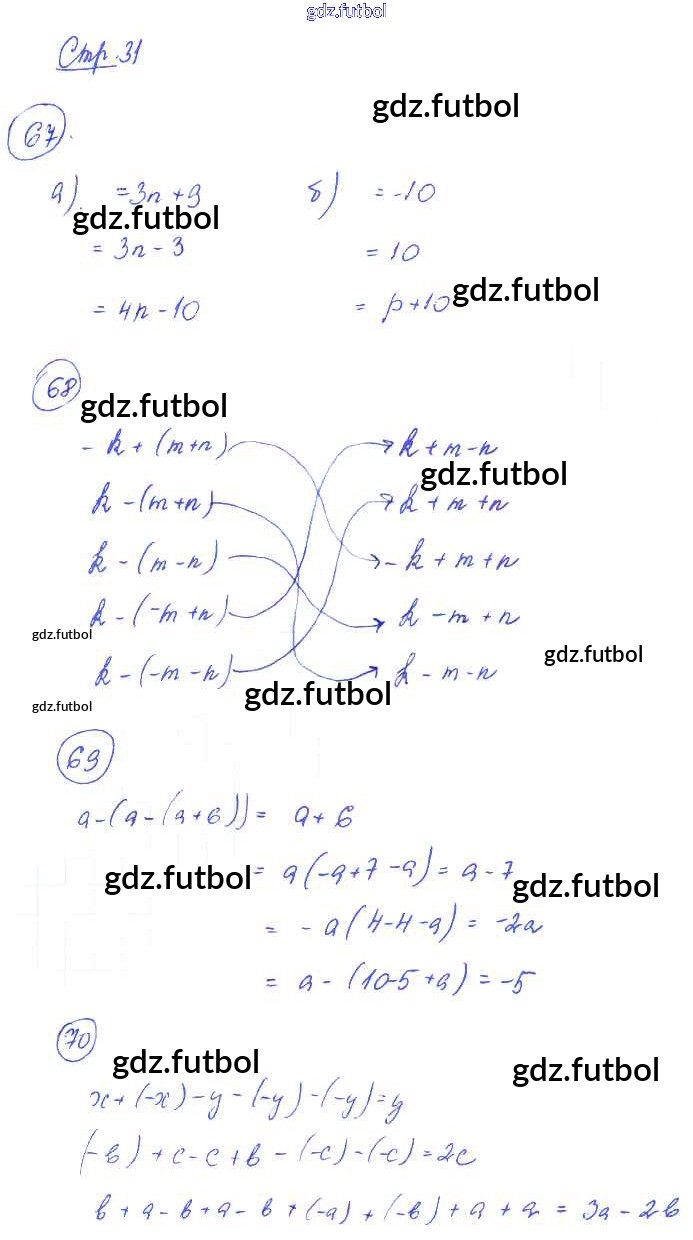 gdz.futbol
Стр. 31
gdz.futbol
67.
а) = 3n + 9 б) = -10
gdz.futbol
= 3n - 3 = 10
gdz.futbol
= 4n - 10 = p + 10
68
gdz.futbol
- k + (m+n) k + m - n
gdz.futbol
k - (m+n) k + m + n
k - (m - n) - k + m + n
k - (-m + n) k - m + n
gdz.futbol
gdz.futbol
k - (-m - n) k - m - n
gdz.futbol
gdz.futbol
69
a - (a - (a + 6)) = a + 6
gdz.futbol
= a (-a + 7 - a) = a - 7
gdz.futbol
= - a (4 - 4 - a) = -2a
= a - (10 - 5 + a) = -5
70
gdz.futbol
gdz.futbol
x + (-x) - y - (-y) - (-y) = y
(-b) + c - c + b - (-c) - (-c) = 2c
b + a - b + a - b + (-a) + (-b) + a + a = 3a - 2b